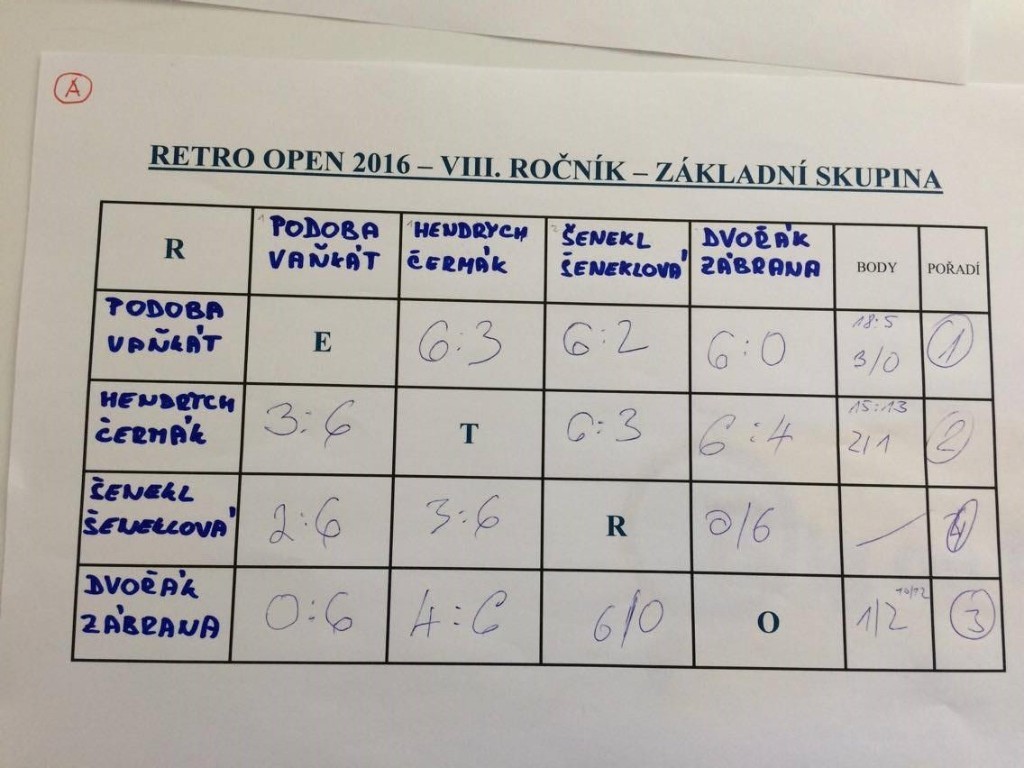 A
RETRO OPEN 2016 – VIII. ROČNÍK – ZÁKLADNÍ SKUPINA
R
PODOBA
VAŇKÁT
HENDRYCH
ČERMÁK
ŠENEKL
ŠENEKLOVÁ
DVOŘÁK
ZÁBRANA
BODY
POŘADÍ
PODOBA
VAŇKÁT
E
6:3
6:2
6:0
18:5
3/0
1
HENDRYCH
ČERMÁK
3:6
T
6:3
6:4
15:13
2/1
2
ŠENEKL
ŠENEKLOVÁ
2:6
3:6
R
0/6
4
DVOŘÁK
ZÁBRANA
0:6
4:6
6/0
O
10/12
1/2
3